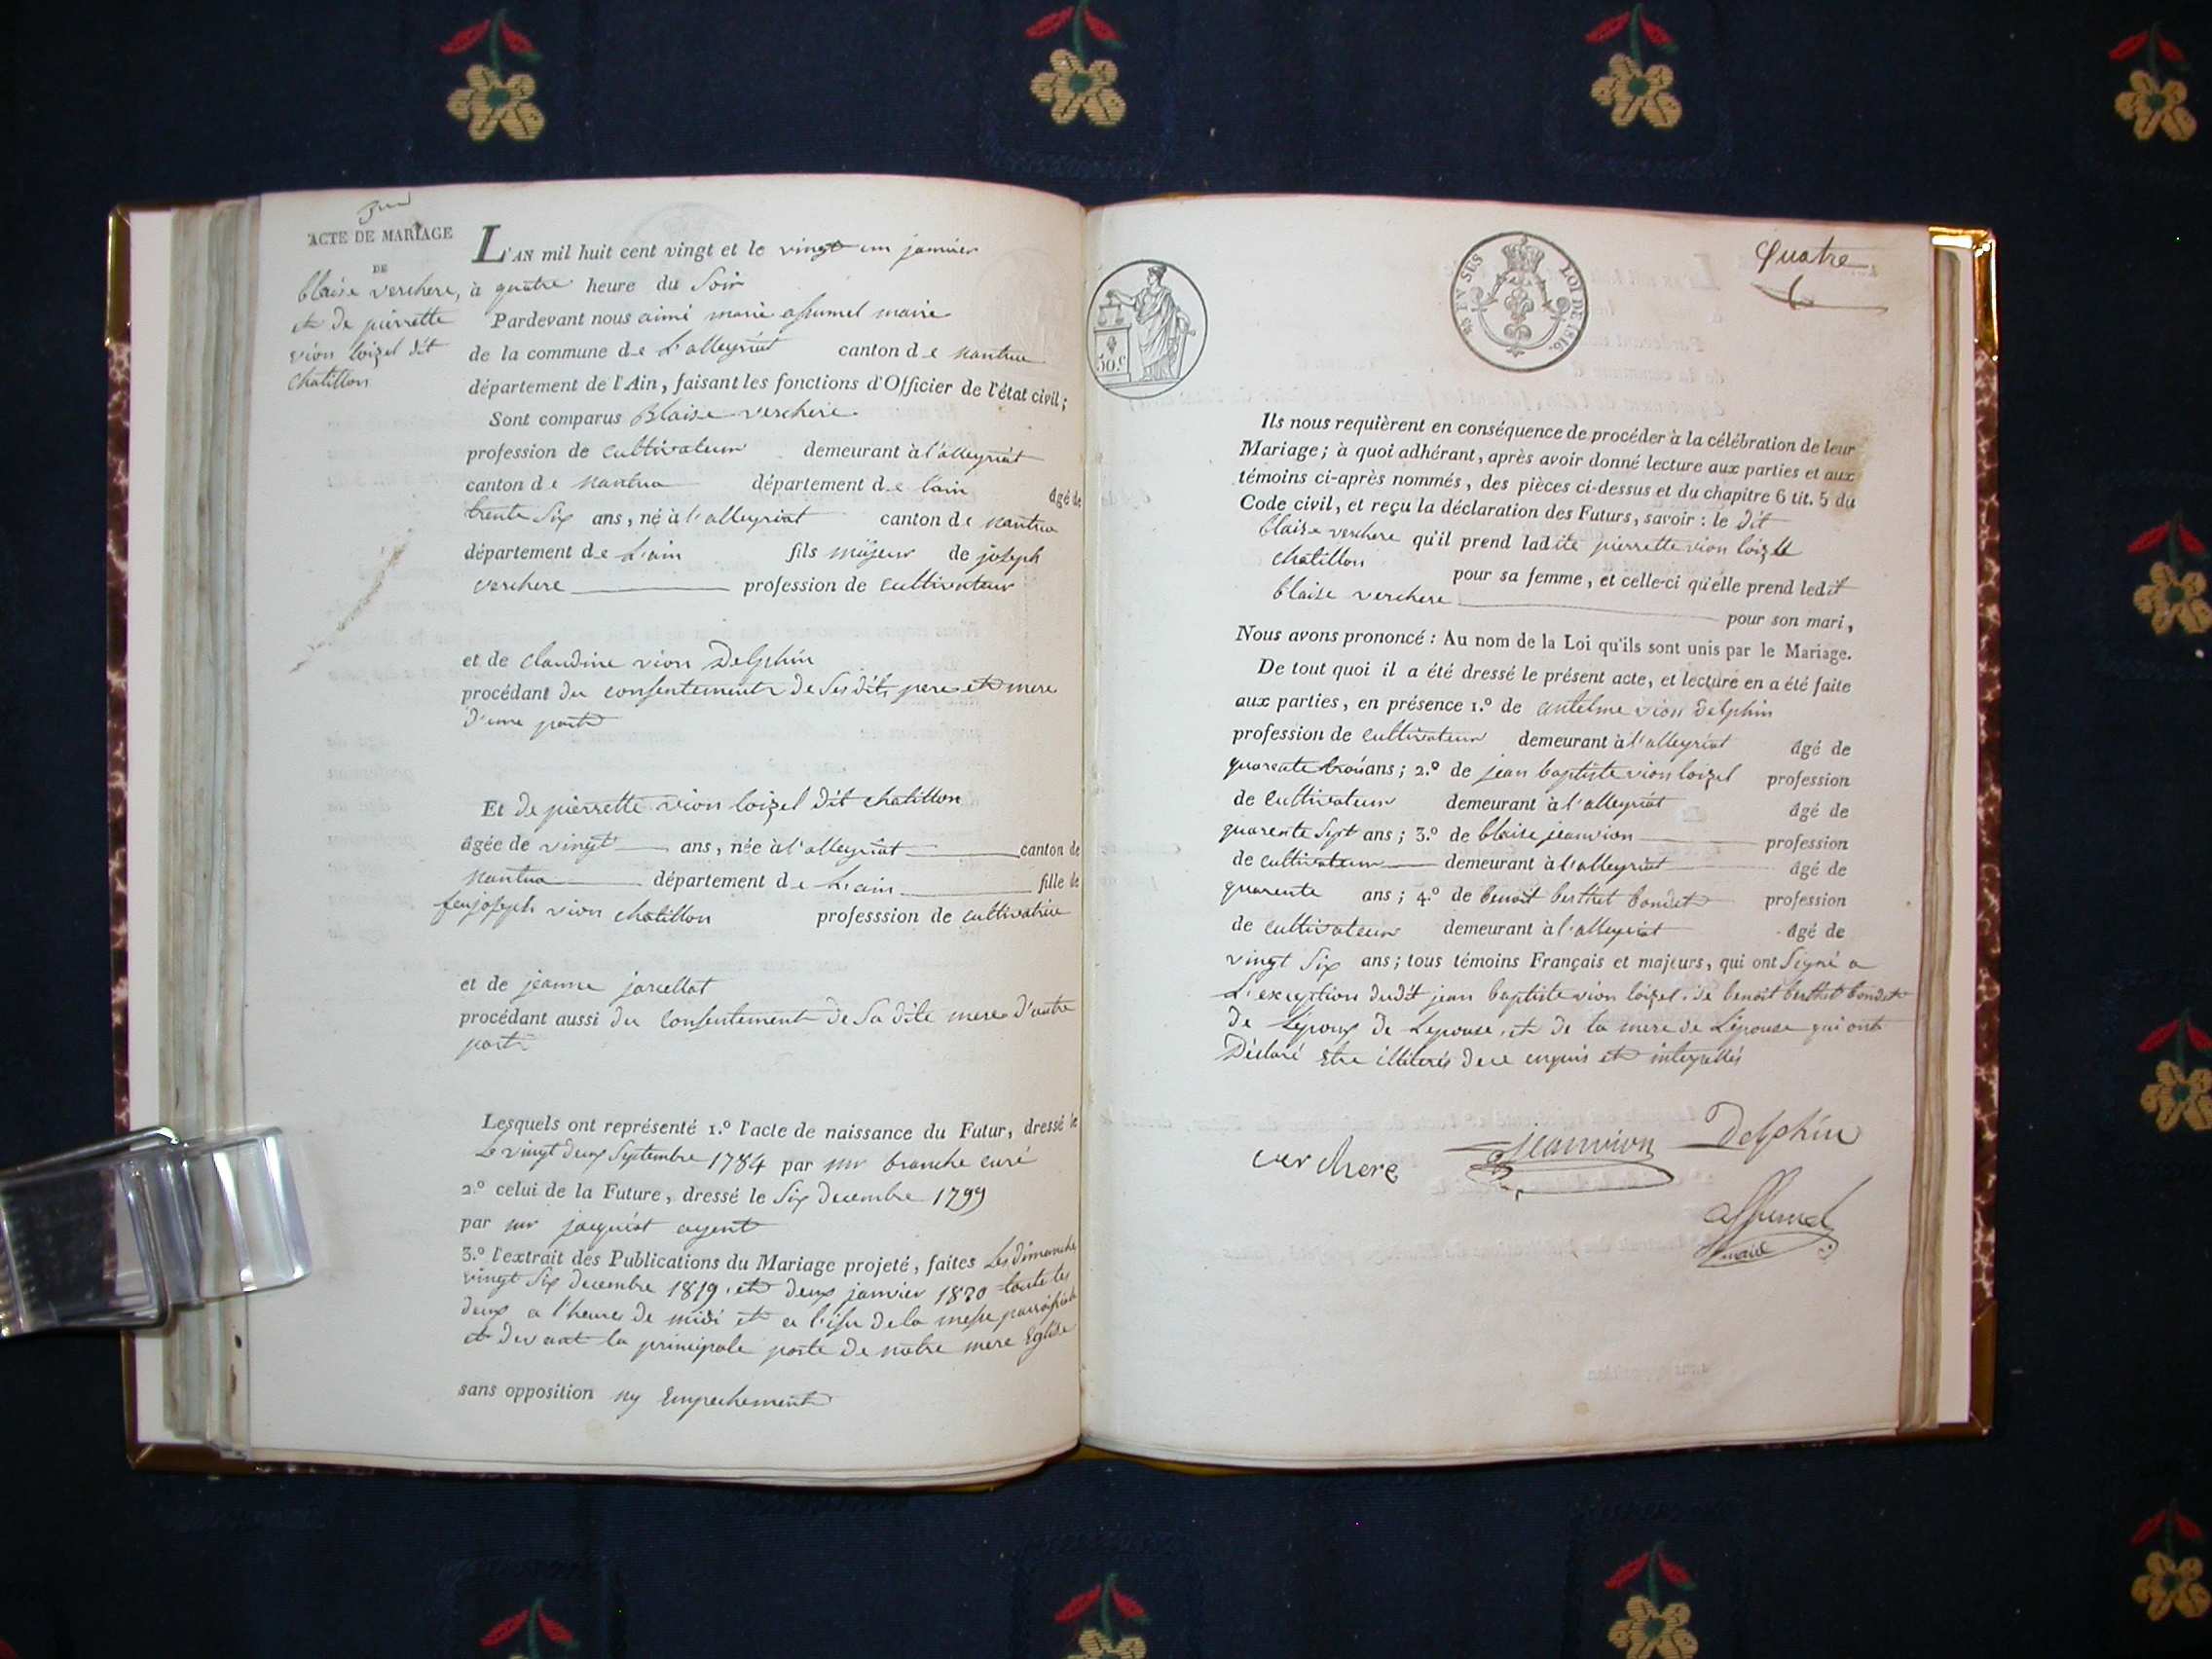 ACTE DE MARIAGE
DE
blaise verchere,
et de pierrette
vion loizel dit
chatillon
L'AN mil huit cent vingt et le vingt un janvier
à quatre heure du Soir
Pardevant nous aimé marie assumel maire
de la commune de L'alleyriat canton de nantua
département de l'Ain, faisant les fonctions d'Officier de l'état civil;
Sont comparus Blaise verchere
profession de cultivateur demeurant à l'alleyriat
canton de nantua département de l'ain âgé de
trente Six ans, né à l'alleyriat canton de nantua
département de L'ain fils majeur de joseph
verchere profession de cultivateur
et de claudine vion Delphin
procédant du consentement de Ses dits pere et mere
d'une part
Et de pierrette vion loizel dit chatillon
âgée de vingt ans, née à l'alleyriat canton de
nantua département de L'ain fille de
feu joseph vion chatillon professsion de cultivatrice
et de jeanne jarcellat
procédant aussi du consentement de Sa dite mere d'autre
part
Lesquels ont représenté 1.º l'acte de naissance du Futur, dressé le
Le vingt deux Septembre 1784 par mr branche curé
2.º celui de la Future, dressé le Six decembre 1799
par mr jacquiot agent
3.º l'extrait des Publications du Mariage projeté, faites Les dimanche
vingt Six decembre 1819 et deux janvier 1820 toute les
deux a l'heure de midi et a l'issu de la messe parroissiale
et devant la principale porte de notre mere Eglise
sans opposition ny Empechement
50 c
LOI DE 1816.
Quatre
Ils nous requièrent en conséquence de procéder à la célébration de leur
Mariage; à quoi adhérant, après avoir donné lecture aux parties et aux
témoins ci-après nommés, des pièces ci-dessus et du chapitre 6 tit. 5 du
Code civil, et reçu la déclaration des Futurs, savoir : le dit
blaise verchere qu'il prend ladite pierrette vion loizel
chatillon pour sa femme, et celle-ci qu'elle prend ledit
blaise verchere pour son mari,
Nous avons prononcé : Au nom de la Loi qu'ils sont unis par le Mariage.
De tout quoi il a été dressé le présent acte, et lecture en a été faite
aux parties, en présence 1.º de antelme vion Delphin
profession de cultivateur demeurant à l'alleyriat âgé de
quarente trois ans; 2.º de jean baptiste vion loizel profession
de cultivateur demeurant à l'alleyriat âgé de
quarente Sept ans; 3.º de blaise jeanvion profession
de cultivateur demeurant à l'alleyriat âgé de
quarente ans; 4.º de benoit berthet bondet profession
de cultivateur demeurant à l'alleyriat âgé de
vingt Six ans; tous témoins Français et majeurs, qui ont Signé a
L'exception dudit jean baptiste vion loizel, de benoit berthet bondet
de L'epoux de Lepouse, et de la mere de L'épouse qui ont
Déclaré Etre illiterés de ce enquis et interpellés
verchere
jeanvion
Delphin
assumel
maire